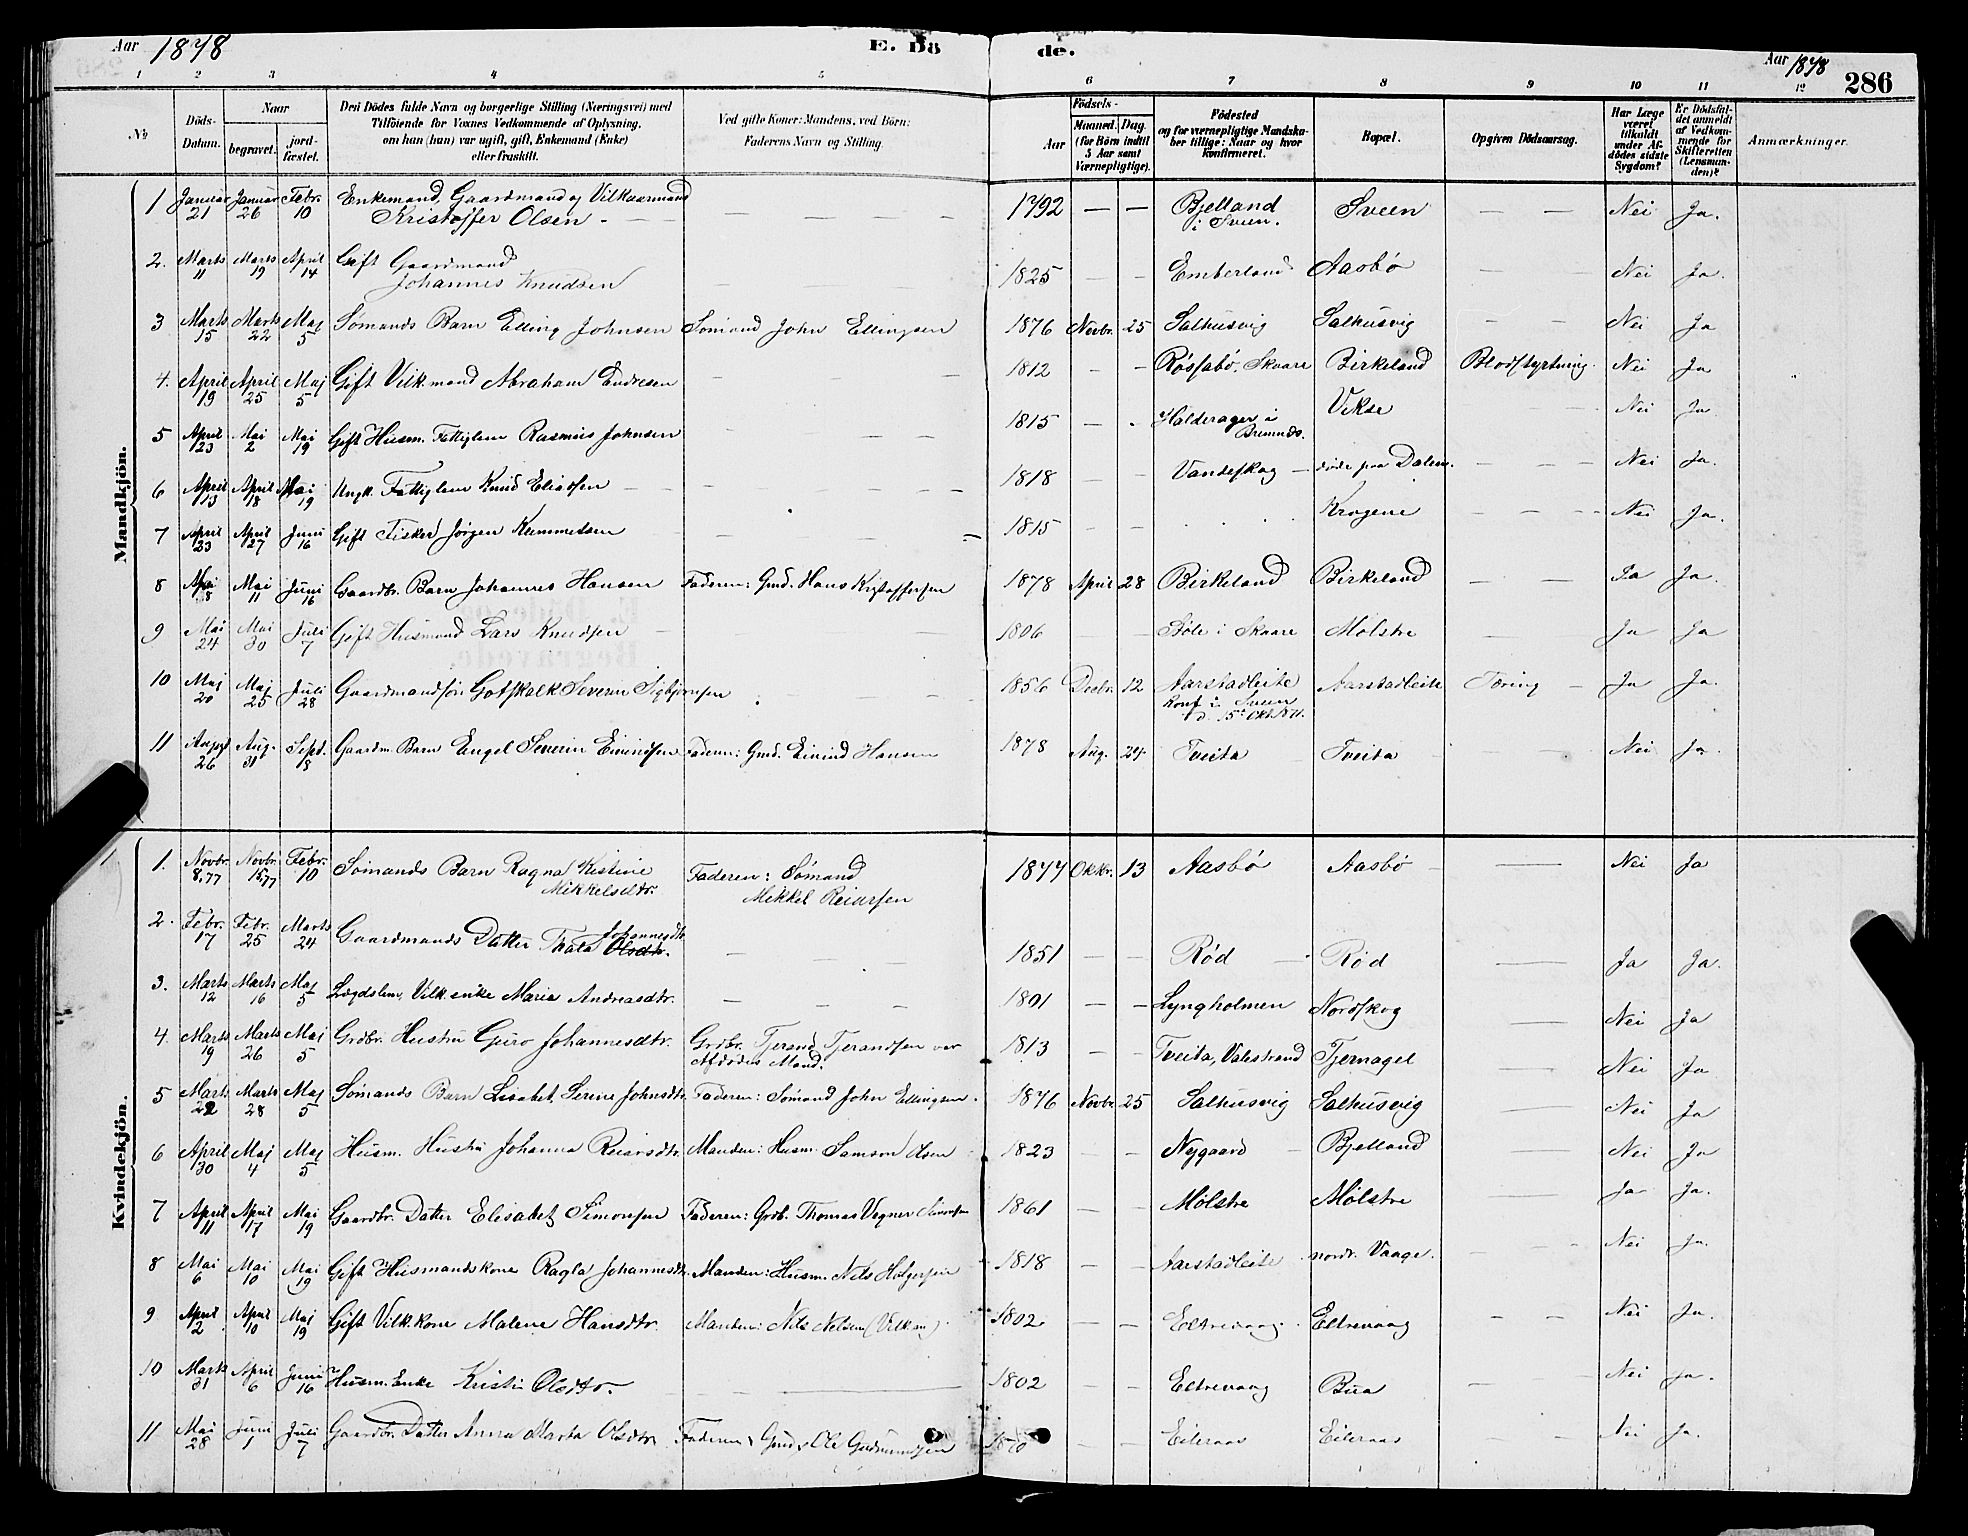 Aar 1878 E. Dö de. Aar 1878 286
1 2 3 4 5 6 7 8 9 10 11 12
№ Döds-Datum. Naar begravet. jordfæstet. Den Dödes fulde Navn og borgerlige Stilling (Næringsvei) med Tilföiende for Voxnes Vedkommende af Oplysning, om han (hun) var ugift, gift, Enkemand (Enke) eller fraskilt. Ved gifte Koner: Mandens, ved Börn: Faderens Navn og Stilling. Födsels- Aar Maaned. Dag. (for Börn indtil 5 Aar samt Værnepligtige). Födested og for værnepligtige Mandskaber tillige: Naar og hvor konfirmeret. Bopæl. Opgiven Dödsaarsag. Har Læge været tilkaldt under Afdödes sidste Sygdom? Er Dödsfaldet anmeldt af Vedkommende for Skifteretten (Lensmanden)? Anmærkninger.
Mandkjön.
1 Januar 21 Januar 26 Febr. 10 Enkemand, Gaardmand og Vilkaarmand Kristoffer Olsen - — — — 1792 — — Bjelland i Sveen. Sveen — — Nei Ja.
2. Marts 11 Marts 19 April 14 Gift Gaardmand Johannes Knudsen — — — 1825 — — Emberland Aasbø — — Nei Ja.
3 Marts 15 Marts 22 Maj 5 Sømands Barn Elling Johnsen Sømand John Ellingsen 1876 Novbr. 25 Salhusvig Salhusvig — — Nei Ja
4. April 19 April 25 Maj 5 Gift Vilk.mand Abraham Endresen — — — 1812 — — Røssabø, Skaare Birkeland Blodstyrtning. Nei Ja
5 April 23 Mai 2 Mai 19 Gift Husm. Fattiglem Rasmus Johnsen — — — 1815 — - Halderager i Bremnes. Vikse — Nei Ja
6 April 13 April 18 Mai 19 Ungk. Fattiglem Knud Eliassen — — — — 1818 — — Vandeskog — døde paa Dalen. — — Nei Ja.
7 April 23 April 27 Juni 16 Gift Fisker Jørgen Kummelsen — — — 1815 — — . . . Krogene — — Nei Ja.
8 Mai 8 Mai 11 Juni 16 Gaardbr. Barn Johannes Hansen Faderen: Gmd. Hans Kristoffersen 1878 April 28 Birkeland Birkeland — — Ja Ja.
9 Mai 24 Mai 30 Juli 7 Gift Husmand Lars Knudsen — 1806 — Støle i Skaare Mølstre — — Ja Ja
10 Maj 20 Maj 25 Juli 28 Gaardmandssøn Gotskalk Severin Sigbjørnsen — — 1856 Decbr. 12 Aarstadleite Konf. i Sveen d. 15de Okt. 1871. Aarstadleite Tæring — Ja Ja.
11 August 26 Aug. 31 Sept. 15 Gaardm. Barn Engel Severin Eivindsen Faderen: Gmd. Eivind Hansen 1878 Aug. 24 Tveita Tveita — — Nei Ja.
Kvindekjön.
1. Novbr. 8.77 Novbr. 15.77 Febr. 10 Sømands Barn Ragna Kistine Mikkelsdtr. Faderen: Sømand Mikkel Reiarsen 1877 Oktbr. 13 Aasbø Aasbø — — Nei Ja
2. Febr. 17 Febr. 25 Marts 24 Gaardmands Datter Thala Johannesdtr. Olsdtr. — — — 1851 — — Rød — Rød — Ja Ja.
3. Marts 12 Marts 16 Maj 5 Lægdslem, Vilk.enke Marie Andreasdtr. — — — 1801 — — Lyngholmen Nordskog — Nei Ja
4. Marts 19 Marts 26 Maj 5 Grdbr. Hustru Guro Johannesdtr. Grdbr. Tjerand Tjerandsen var Afdødes Mand. 1813 — — Tveita, Valestrand Tjernagel — Nei Ja
5 Marts 22 Marts 28 Maj 5 Sømands Barn Lisabet Serine Johnsdtr. Faderen: Sømand John Ellingsen. 1876 Novbr. 25 Salhusvig Salhusvig — Nei Ja
6 April 30 Maj 4 Maj 5 Husm. Hustru Johanna Reiarsdtr. Manden: Husm. Samson Olsen 1823 — — Nygaard Bjelland — Nei Ja
7 April 11 April 17 Mai 19 Gaardbr. Datter Elisabet Simonsen Faderen: Grdb. Thomas Vegner Simonsen 1861 — — Mølstre Mølstre — Ja Ja.
8 Mai 6 Mai 10 Mai 19 Gift Husmandskone Ragla Johannesdtr. Manden: Husm. Nils Holgersen 1818 — — Aarstadleite nordr. Vaage. — — Nei Ja.
9 April 2 April 10 Maj 19 Gift Vilk.kone Malene Hansdtr. Manden: Nils Nelsen (Vilkm) 1802 — — Eltrevaag. Eltrevaag — — Nei Ja.
10 Marts 31 April 6 Juni 16 Husm. Enke Kristi Olsdtr. — — — 1802 — — Eltrevaag Bua — — Nei Ja.
11 Mai 28 Juni 1 Juli 7 Gaardbr. Datter Anna Marta Olsdtr. Faderen: Gmd. Ole Gudmundsen 1870 — — Eileraas Eileraas — — Nei Ja.